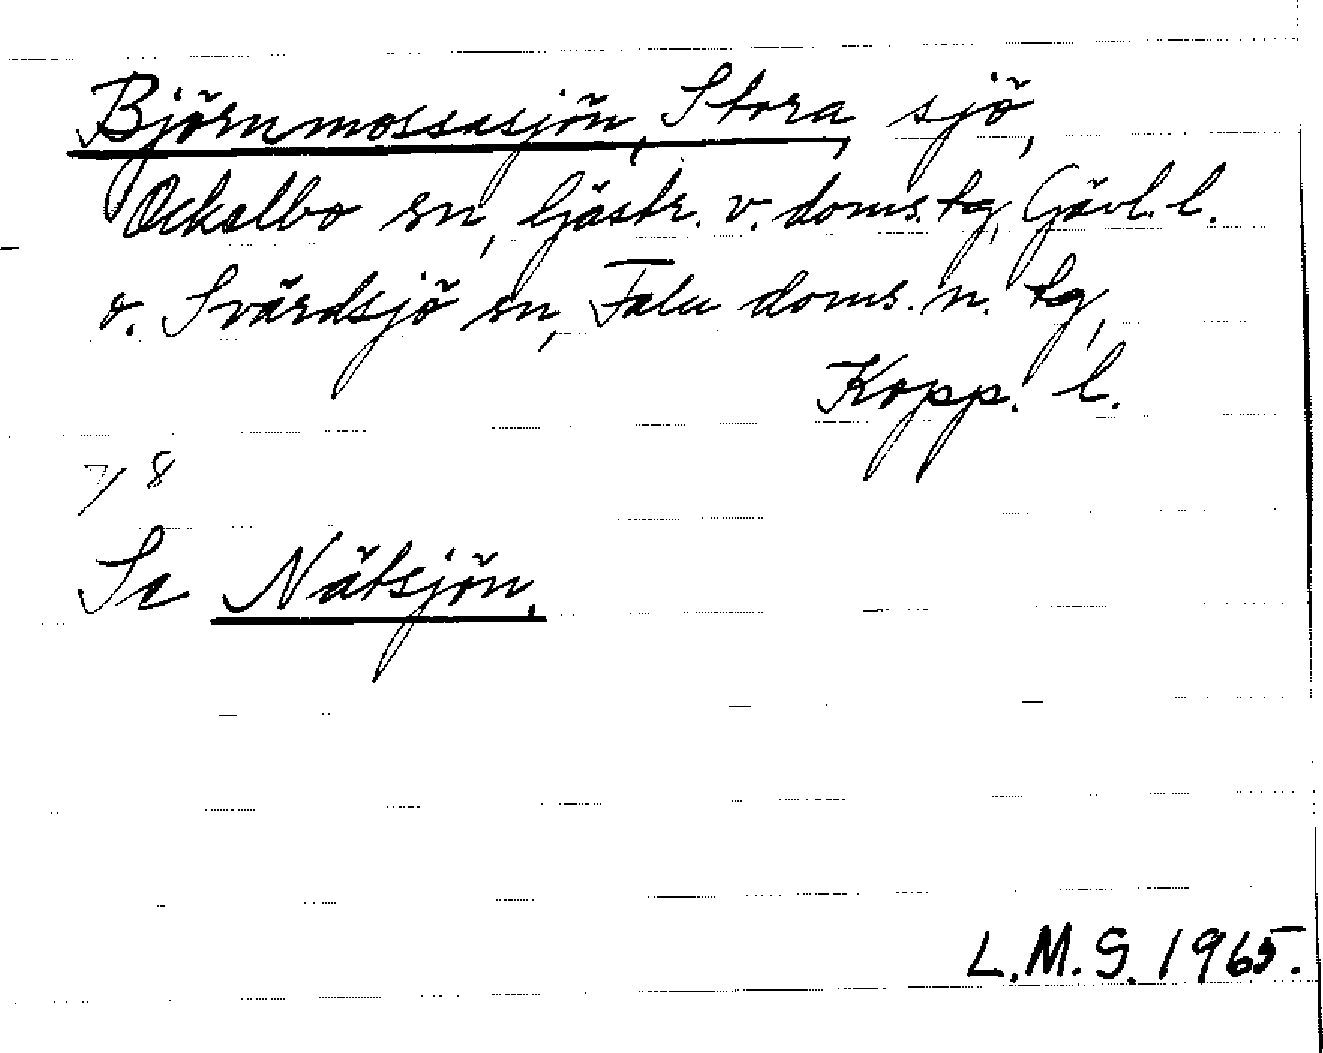 Björnmossasjön, Stora, sjö,
Ockelbo sn, Gästr. v. doms. tg, Gävl. l.
o. Svärdsjö sn, Falu doms. n. tg,
Kopp. l.
7/8
Se Nätsjön.
L.M.S. 1965.